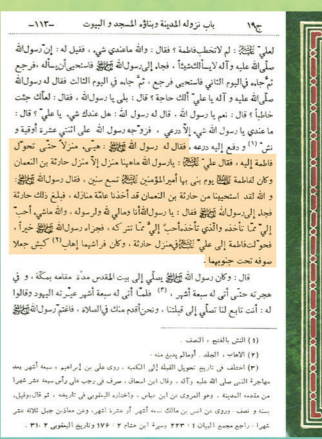 ج١٩ باب نزوله المدينة وبناؤه المسجد و البيوت -١١٣-
لعلي ﷺ : لم لا تخطب فاطمة ؟ فقال : والله ما عندي شيء ، فقيل له : إن رسول الله
صلى الله عليه و آله لا يسألك شيئاً ، فجاء إلى رسول الله ﷺ فاستحيى أن يسأله ، فرجع
ثم جاء في اليوم الثاني فاستحيى فرجع ، ثم جاء في اليوم الثالث فقال له رسول الله
صلى الله عليه و آله يا علي ألك حاجة ؟ قال : بلى يا رسول الله ، فقال : لعلك جئت
خاطباً ؟ قال : نعم يا رسول الله ، قال له رسول الله : هل عندك شيء يا علي ؟ قال :
ما عندي يا رسول الله شيء إلا درعي ، فزوجه رسول الله على اثنتي عشرة أوقية و
نش (١) و دفع إليه درعه ، فقال له رسول الله ﷺ : هيىء منزلاً حتى تحول
فاطمة إليه ، فقال علي : يا رسول الله ما ههنا منزل إلا منزل حارثة بن النعمان
وكان لفاطمة يوم بنى بها أمير المؤمنين تسع سنين ، فقال رسول الله ﷺ :
و الله لقد استحيينا من حارثة بن النعمان قد أخذنا عامة منازله ، فبلغ ذلك حارثة
فجاء إلى رسول الله ﷺ فقال : يا رسول الله أنا ومالي لله ولرسوله ، والله ما شيء أحب
إلي مما تأخذه والذي تأخذه أحب إلي مما تتركه ، فجزاه رسول الله ﷺ خيراً ،
فحولت فاطمة إلى علي في منزل حارثة ، وكان فراشهما إهاب (٢) كبش جعلا
صوفه تحت جنوبهما .
قال : وكان رسول الله ﷺ يصلي إلى بيت المقدس مدة مقامه بمكة ، و في
هجرته حتى أتى له سبعة أشهر ، (٣) فلما أتى له سبعة أشهر عيرته اليهود وقالوا
له : أنت تابع لنا تصلي إلى قبلتنا ، ونحن أقدم منك في الصلاة ، فاغتم رسول الله ﷺ
(١) النش بالفتح : النصف .
(٢) الاهاب : الجلد . أو مالم يدبغ منه .
(٣) اختلف في تاريخ تحويل القبلة إلى الكعبة ، روى علي بن إبراهيم ، سبعة أشهر بعد
مهاجرة النبي صلى الله عليه و آله ، وقال ابن اسحاق : صرف في رجب على رأس سبعة عشر شهرا
من مقدمه المدينة ، وهو المروى عن ابن عباس ، واختاره اليعقوبى في تاريخه ، ثم قال :وقيل :
سنة و نصف ، وروى عن انس بن مالك تسعة أشهر أو عشرة أشهر ، وعن معاذ بن جبل ثلاثة عشر
شهرا ، راجع مجمع البيان ١ : ٢٢٣ وسيرة ابن هشام ٢ : ١٧٦ وتاريخ اليعقوبى ٢ : ٣١ .